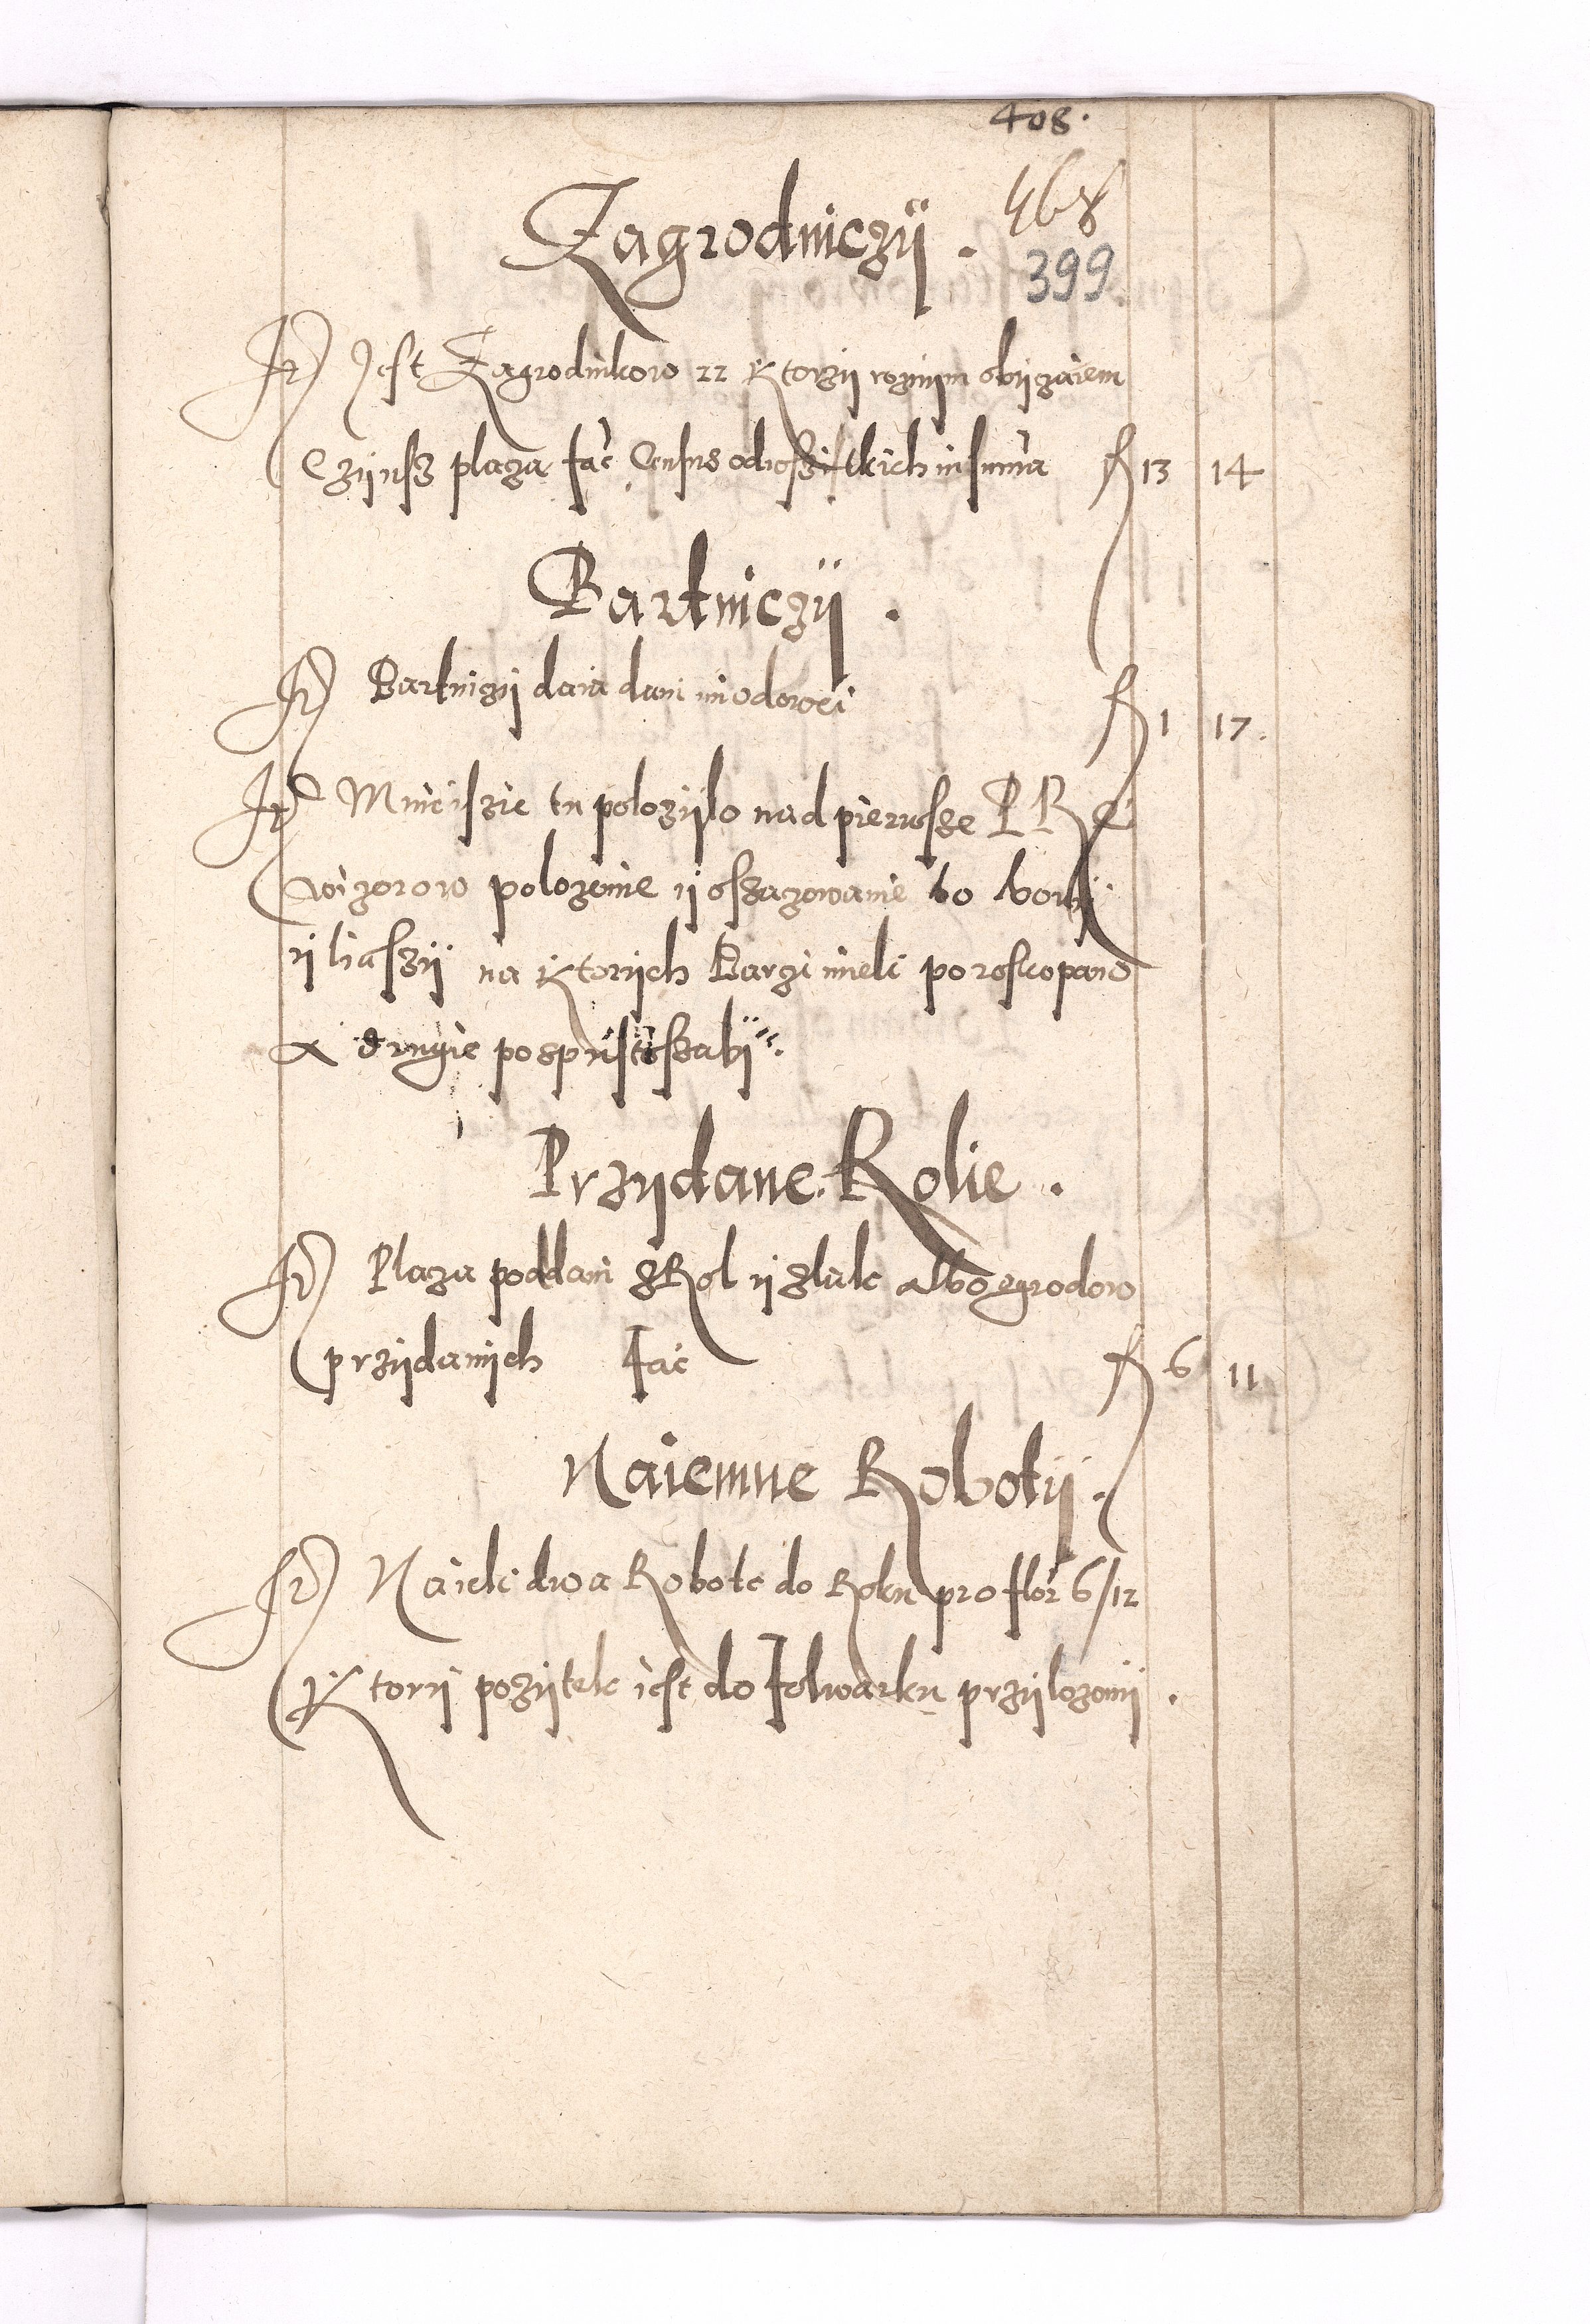 408.
468
Zagrodniczÿ .
399
It Jest Zagrodnikow 22 Ktorzÿ roznijm obijczaiem
Czijnsz placza fac Census odwszistkich in suma fl 13 14
Bartniczÿ .
It Bartniczij daia dani miodowei fl 1 17.
It Mnieiszie tu polozijlo nad pierwsze P R e
wizorow polozenie ij oszaczowanie bo borij
ij liaszÿ na Ktorijch Barzi mieli poroskopano
A drugie pospustoszalÿ.
Przijdane Rolie .
It Placza poddani z Rol ij z lak albo ogrodow
przijdanijch fac fl 6 11
Naiemne Robotij .
It Naieli dwa Robote do Roku pro flor 6/12
Ktorij pozijtek iest do folwarku przijlozonij .